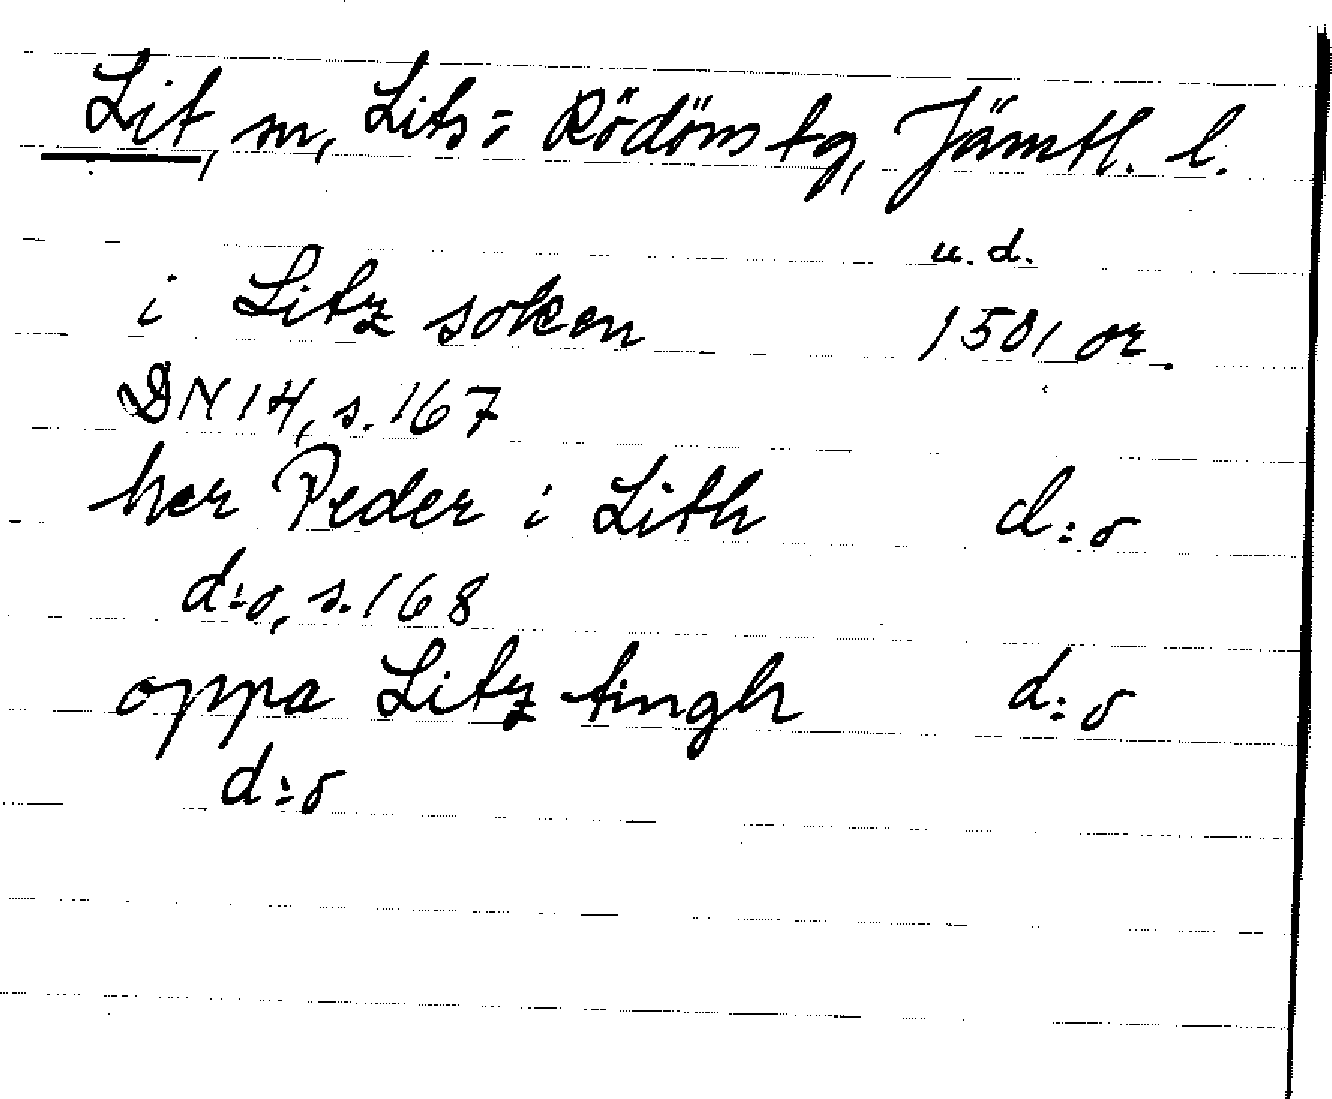 Lit, sn, Lits- Rödöns tg, Jämtl. l.
u. d.
i Litz soken 1501 or.
DN 14, s. 167
her Peder i Lith d:o
d:o, s. 168
oppa Litz tingh d:o
d:o